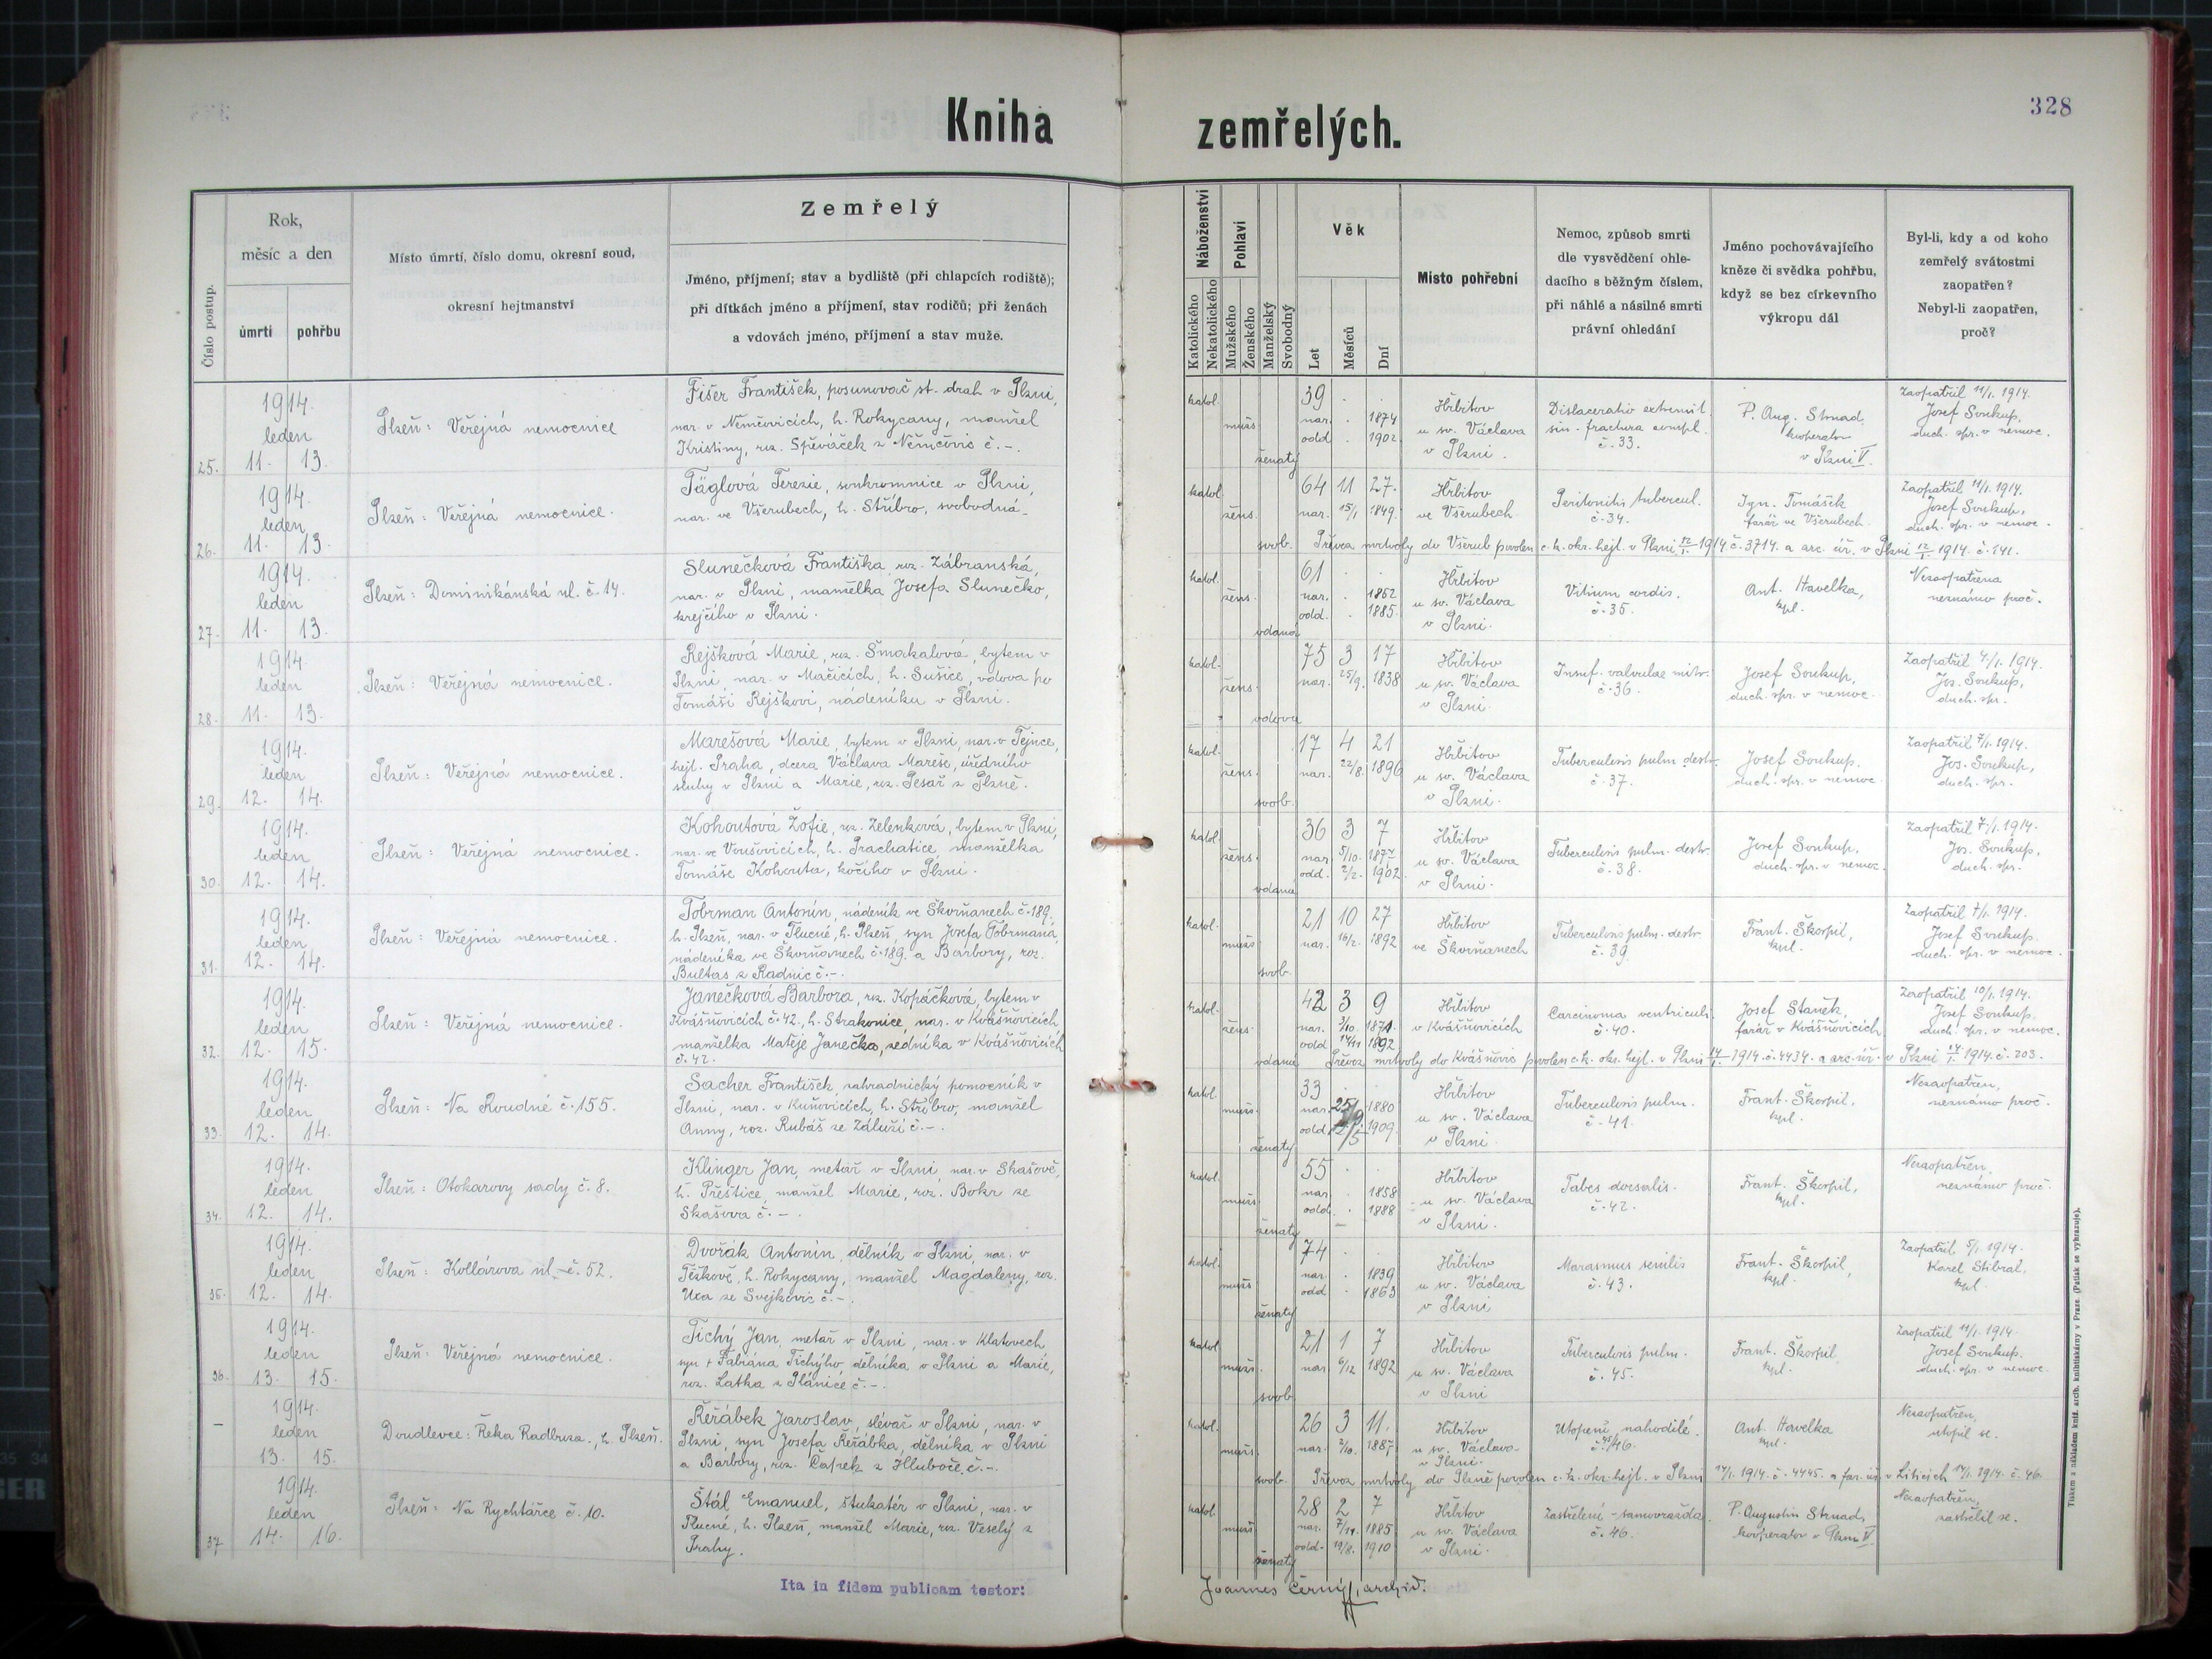 Kniha zemřelých.
328
Číslo postup.
Rok,
měsíc a den
úmrtí
pohřbu
Místo úmrtí, číslo domu, okresní soud,
okresní hejtmanství
Zemřelý
Jméno, příjmení; stav a bydliště (při chlapcích rodiště);
při dítkách jméno a příjmení, stav rodičů; při ženách
a vdovách jméno, příjmení a stav muže.
Náboženství
Katolického
Nekatolického
Pohlaví
Mužského
Ženského
Manželský
Svobodný
Věk
Let
Měsíců
Dní
Místo pohřební
Nemoc, způsob smrti
dle vysvědčení ohle-
dacího s běžným číslem,
při náhlé a násilné smrti
právní ohledání
Jméno pochovávajícího
kněze či svědka pohřbu,
když se bez církevního
výkropu dál
Byl-li, kdy a od koho
zemřelý svátostmi
zaopatřen?
Nebyl-li zaopatřen,
proč?
25.
1914.
leden
11. 13.
Plzeň: Veřejná nemocnice
Fišer František, posunovač st. drah v Plzni,
nar. v Němčovicích, h. Rokycany, manžel
Kristiny, roz. Spěváček z Němčovic č. -.
katol. muž. ženatý
39 . .
nar. . 1874
odd. . 1902
Hřbitov
u sv. Václava
v Plzni.
Dislaceratio extremit.
sin. fractura compl.
č. 33.
P. Aug. Strnad,
kooperator
v Plzni V.
Zaopatřil 11/1. 1914.
Josef Soukup,
duch. spr. v nemoc.
26.
1914.
leden
11. 13.
Plzeň: Veřejná nemocnice.
Täglová Terezie, soukromnice v Plzni,
nar. ve Všerubech, h. Stříbro, svobodná.
katol. žens. svob.
64 11 27.
nar. 15/1 1849.
Hřbitov
ve Všerubech
Peritonitis tubercul.
č. 34.
Ign. Tomášek
farář ve Všerubech.
Zaopatřil 11/1. 1914.
Josef Soukup,
duch. spr. v nemoc.
Převoz mrtvoly do Všerub povolen c. k. okr. hejt. v Plzni 12/1. 1914 č. 3714. a arc. úř. v Plzni 12/1. 1914. č. 141.
27.
1914.
leden
11. 13.
Plzeň: Dominikánská ul. č. 14.
Slunečková Františka, roz. Zábranská,
nar. v Plzni, manželka Josefa Slunečko,
krejčího v Plzni.
katol. žens. vdaná
61 . .
nar. . 1852
odd. . 1885.
Hřbitov
u sv. Václava
v Plzni.
Vitium cordis.
č. 35.
Ant. Havelka,
kpl.
Nezaopatřena
neznámo proč.
28.
1914.
leden
11. 13.
Plzeň: Veřejná nemocnice.
Rejšková Marie, roz. Smakalová, bytem v
Plzni nar. v Mačicích, h. Sušice, vdova po
Tomáši Rejškovi, nádeníku v Plzni.
katol. žens. vdova
75 3 17
nar. 25/9. 1838
Hřbitov
u sv. Václava
v Plzni.
Insuf. valvulae mitr.
č. 36.
Josef Soukup,
duch. spr. v nemoc.
Zaopatřil 4/1. 1914.
Jos. Soukup,
duch. spr.
29.
1914.
leden
12. 14.
Plzeň: Veřejná nemocnice.
Marešová Marie, bytem v Plzni, nar. v Tejnce,
hejt. Praha, dcera Václava Mareše, úředního
sluhy v Plzni a Marie, roz. Pesař z Plzně.
katol. žens. svob.
17 4 21
nar. 22/8. 1896
Hřbitov
u sv. Václava
v Plzni.
Tuberculosis pulm destr.
č. 37.
Josef Soukup.
duch. spr. v nemoc.
Zaopatřil 7/1. 1914.
Jos. Soukup,
duch. spr.
30.
1914.
leden
12. 14.
Plzeň: Veřejná nemocnice.
Kohoutová Žofie, roz. Zelenková, bytem v Plzni,
nar. ve h. Prachatice manželka
Tomáše Kohouta, kočího v Plzni.
katol. žens. vdaná
36 3 7
nar. 5/10. 1877
odd. 2/2. 1902.
Hřbitov
u sv. Václava
v Plzni.
Tuberculosis pulm. destr.
č. 38.
Josef Soukup,
duch. spr. v nemoc.
Zaopatřil 7/1. 1914.
Jos. Soukup,
duch. spr.
31.
1914.
leden
12. 14.
Plzeň: Veřejná nemocnice.
Tobrman Antonín, nádeník ve Škvrňanech č. 189.
h. Plzeň, nar. v Tlucné, h. Plzeň, syn Josefa Tobrmana,
nádeníka ve Škvrňanech č. 189. a Barbory, roz.
Bultas z Radnic č. -.
katol. muž. svob.
21 10 27
nar. 16/2. 1892
Hřbitov
ve Škvrňanech
Tuberculosis pulm. destr.
č. 39.
Frant. Škorpil,
kpl.
Zaopatřil 7/1. 1914.
Josef Soukup.
duch. spr. v nemoc.
32.
1914.
leden
12. 15.
Plzeň: Veřejná nemocnice.
Janečková Barbora, roz. Kopáčková, bytem v
Kvášňovicích č. 42., h. Strakonice, nar. v Kvášňovicích
manželka Matěje Janečka, zedníka v Kvášňovicích
č. 42.
katol. žens. vdaná
42 3 9
nar. 3/10. 1871.
odd. 14/11 1892
Hřbitov
v Kvášňovicích
Carcinoma ventriculi.
č. 40.
Josef Staněk,
farář v Kvášňovicích
Zaopatřil 10/1. 1914.
Josef Soukup.
duch. spr. v nemoc.
Převoz mrtvoly do Kvášňovic povolen c. k. okr. hejt. v Plzni 14/1. 1914. č. 4434. a arc. úř. v Plzni 14/1. 1914. č. 203.
33.
1914.
leden
12. 14.
Plzeň: Na Roudné č. 155.
Sacher František zahradnický pomocník v
Plzni, nar. v Kuňovicích, h. Stříbro, manžel
Anny, roz. Rubáš ze Záluží č. -.
katol. muž. ženatý
33 .
nar. 25/9 1880
odd. 1909.
Hřbitov
u sv. Václava
v Plzni.
Tuberculosis pulm.
č. 41.
Frant. Škorpil,
kpl.
Nezaopatřen,
neznámo proč.
34.
1914.
leden
12. 14.
Plzeň: Otokarovy sady č. 8.
Klinger Jan, metař v Plzni, nar. v Skašově,
h. Přeštice, manžel Marie, roz. Bokr ze
Skašova č. -.
katol. muž. ženatý
55 . .
nar. . 1858
odd. . 1888
Hřbitov
u sv. Václava
v Plzni.
Tabes dorsalis.
č. 42.
Frant. Škorpil,
kpl.
Nezaopatřen.
neznámo proč.
35.
1914.
leden
12. 14.
Plzeň: Kollárova ul. č. 52.
Dvořák Antonín, dělník v Plzni, nar. v
Těškově, h. Rokycany, manžel Magdaleny, roz.
Uxa ze Svejkovic č. -.
katol. muž. ženatý
74 . .
nar. . 1839
odd. . 1863
Hřbitov
u sv. Václava
v Plzni
Marasmus senilis
č. 43.
Frant. Škorpil,
kpl.
Zaopatřil 5/1. 1914.
Karel Stibral,
kpl.
36.
1914.
leden
13. 15.
Plzeň: Veřejná nemocnice.
Tichý Jan, metař v Plzni, nar. v Klatovech,
syn + Fabiána Tichýho, dělníka v Plzni a Marie,
roz. Latka z Plánice č. -.
katol. muž. svob.
21 1 7
nar. 6/12 1892
Hřbitov
u sv. Václava
v Plzni
Tuberculosis pulm.
č. 45.
Frant. Škorpil,
kpl.
Zaopatřil 11/1. 1914.
Josef Soukup.
duch. spr. v nemoc.
-
1914.
leden
13. 15.
Doudlevce: Řeka Radbuza., h. Plzeň.
Řeřábek Jaroslav, slévač v Plzni, nar. v
Plzni, syn Josefa Řeřábka, dělníka v Plzni
a Barbory, roz. Čapek z Hluboče č. -.
katol. muž. svob.
26 3 11.
nar. 2/10. 1887
Hřbitov
u sv. Václava
v Plzni.
Utopení nahodilé.
Ant. Havelka
kpl.
Nezaopatřen,
utopil se.
Převoz mrtvoly do Plzně povolen c. k. okr. hejt. v Plzni 14/1. 1914. č. 4445. a far. úř. v Liticích 14/1. 1914. č. 46.
37.
1914.
leden
14. 16.
Plzeň: Na Rychtářce č. 10.
Štál Emanuel, štukatér v Plzni, nar. v
Tlucné, h. Plzeň, manžel Marie, roz. Veselý z
Prahy.
katol. muž. ženatý
28 2 7
nar. 7/11. 1885
odd. 19/8. 1910
Hřbitov
u sv. Václava
v Plzni.
Zastřelení - samovražda.
č. 46.
P. Augustin Strnad,
kooperator v Plzni V.
Nezaopatřen,
zastřelil se.
Ita in fidem publicam testor:
Joannes Černý, archid.
Tiskem a nákladem kníž. arcib. knihtiskárny v Praze. (Patisk se vyhrazuje).